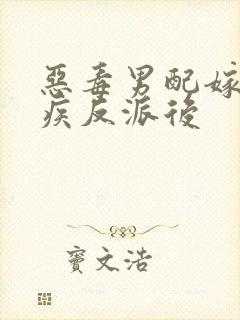 惡毒男配嫁
疾反派後
竇文浩